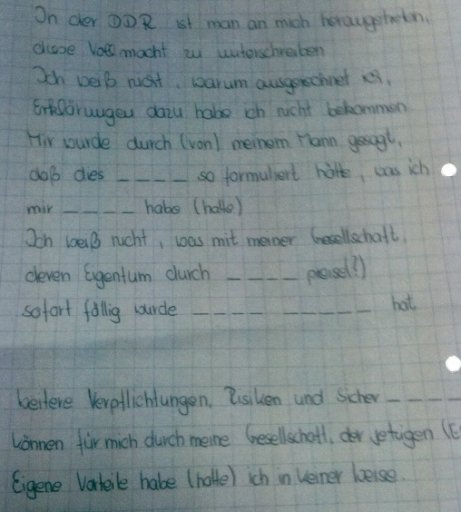 In der DDR ist man an mich herangetreten,
diese Vollmacht zu unterschreiben
Ich weiß nicht, warum ausgerechnet ich,
Erklärungen dazu habe ich nicht bekommen
Mir wurde durch (von) meinem Mann gesagt,
daß dies _ _ _ _ so formuliert hätte, was ich
mir _ _ _ _ habe (hatte)
Ich weiß nicht, was mit meiner Gesellschaft,
deren Eigentum durch _ _ _ _
sofort fällig wurde _ _ _ _ _ _ _ _ _ hat.
Weitere Verpflichtungen, Risiken und Sicher _ _ _ _
können für mich durch meine Gesellschaft, der jetzigen
Eigene Vorteile habe (hatte) ich in keiner Weise.